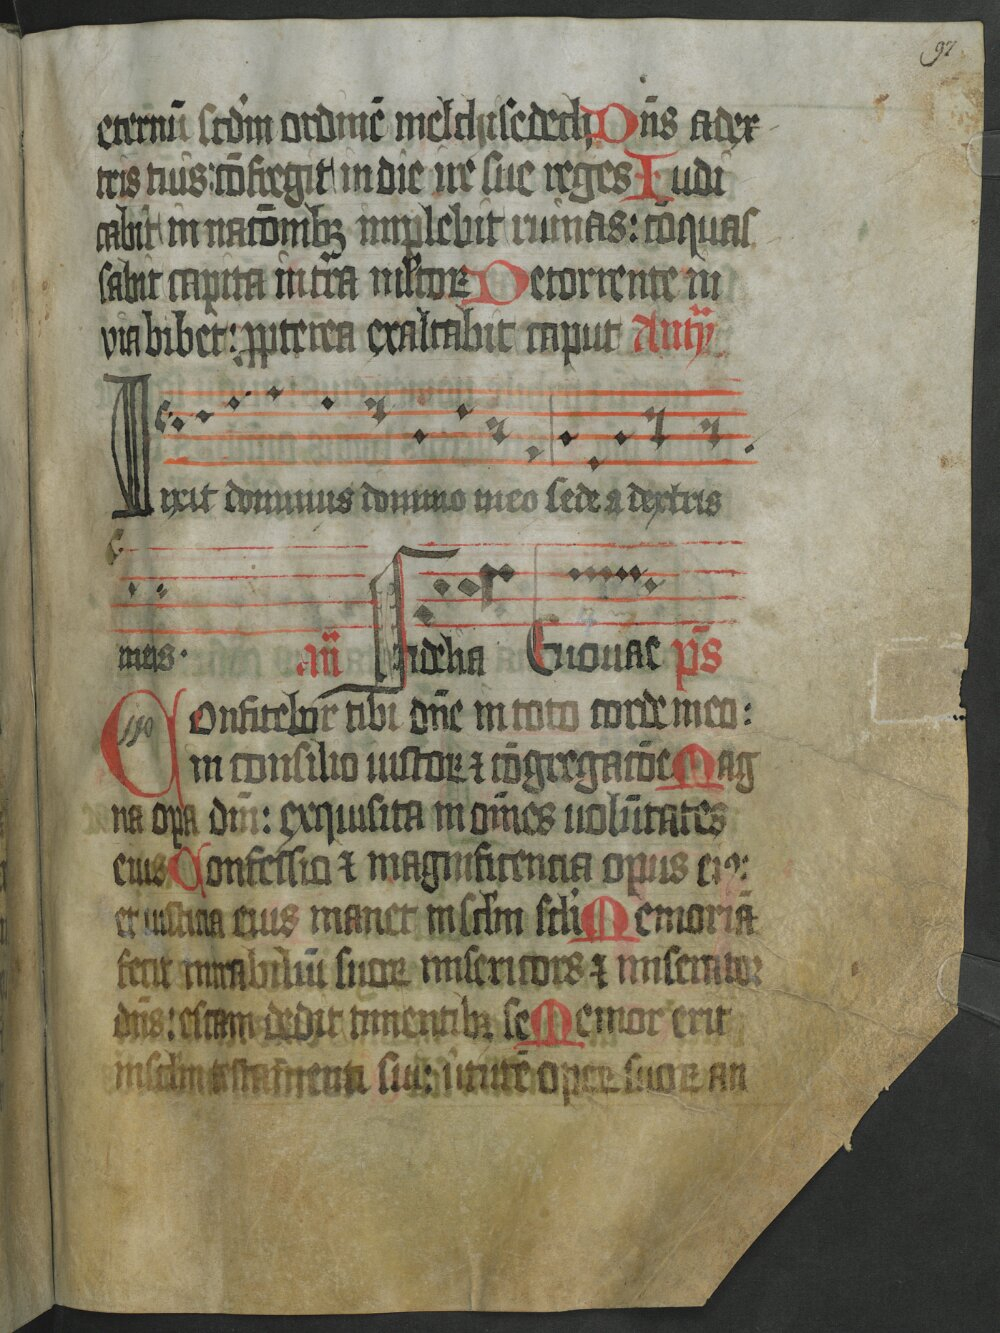 97
eternū scd'm ordinē melchisedech Dn̄s a dex
tris tuis: cōfregit in die ire sue reges Iudi
cabit in nacōnibꝫ implebit ruinas: cōquas
sabit capita in t̄ra m̄ltoꝝ De torrente in
via bibet: ꝓpterea exaltabit caput Anty̅
Dixit dominus domino meo sede a dextris
meis. an̄ Fidelia Euouae ps̄
Confitebor tibi dn̄e in toto corde meo:
in consilio iustoꝝ ⁊ cōgregacōe Mag
na opa dn̄i: exquisita in om̄es uolūtates
eius Confessio ⁊ magnificencia opus eiꝰ:
et iusticia eius manet in sc̄lm sc̄li Memoriā
fecit mirabiliū suoꝝ misericors ⁊ miserator
dn̄s: escam dedit timentibꝫ se Memor erit
in sc̄lm testamenti sui: uirtutē operꝫ suoꝝ an